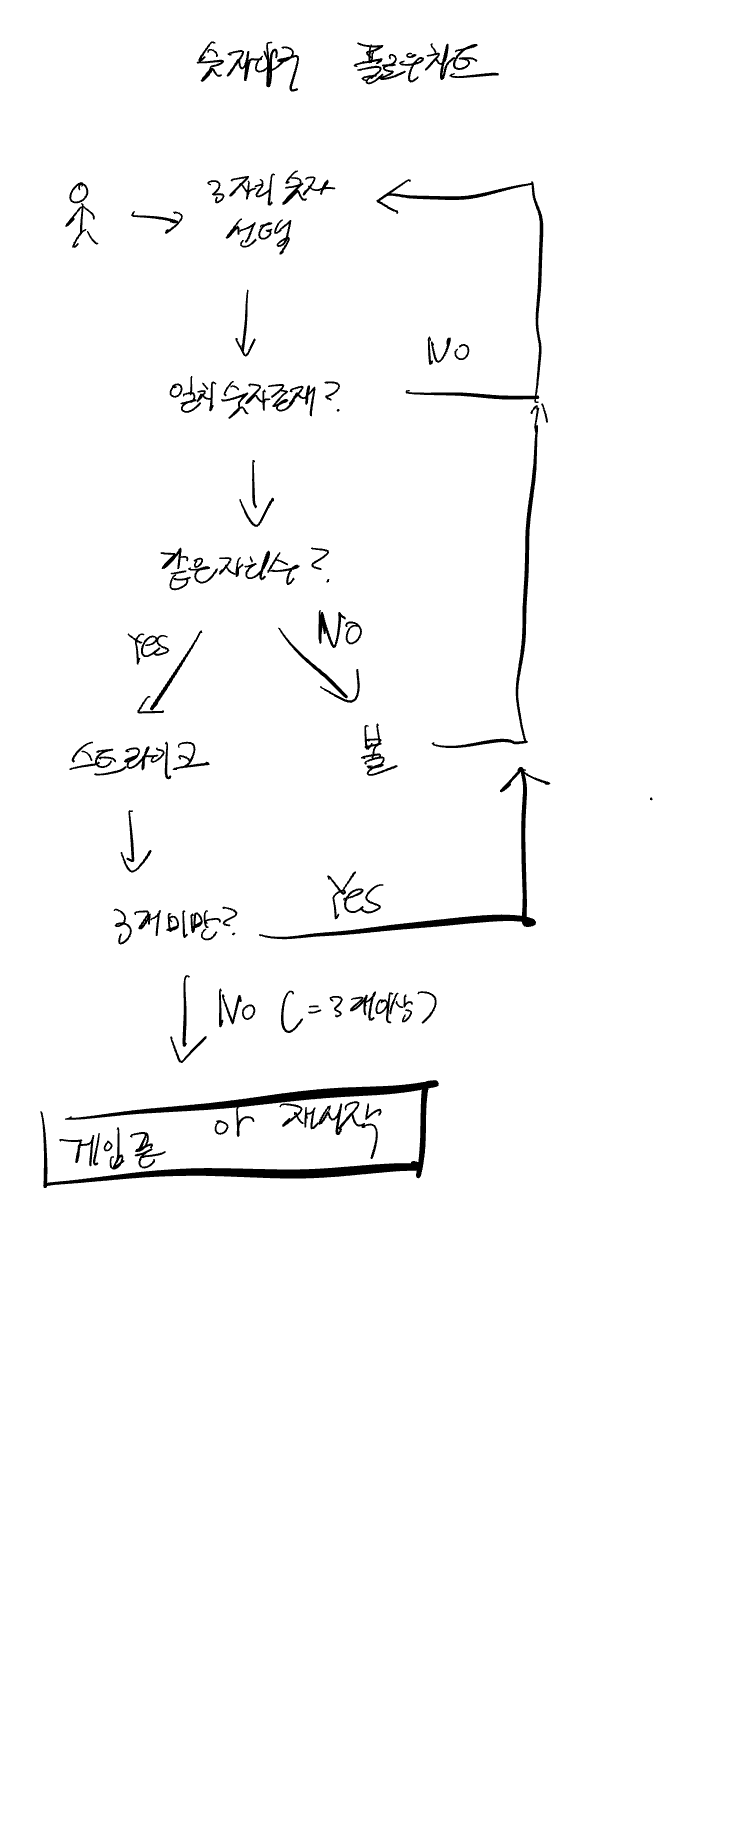 숫자야구 플로우차트
3자리 숫자
선택
No
일치 숫자존재?
같은자리수?
Yes
No
스트라이크
볼
Yes
3개미만?
No (=3개이상)
게임끝 or 재시작